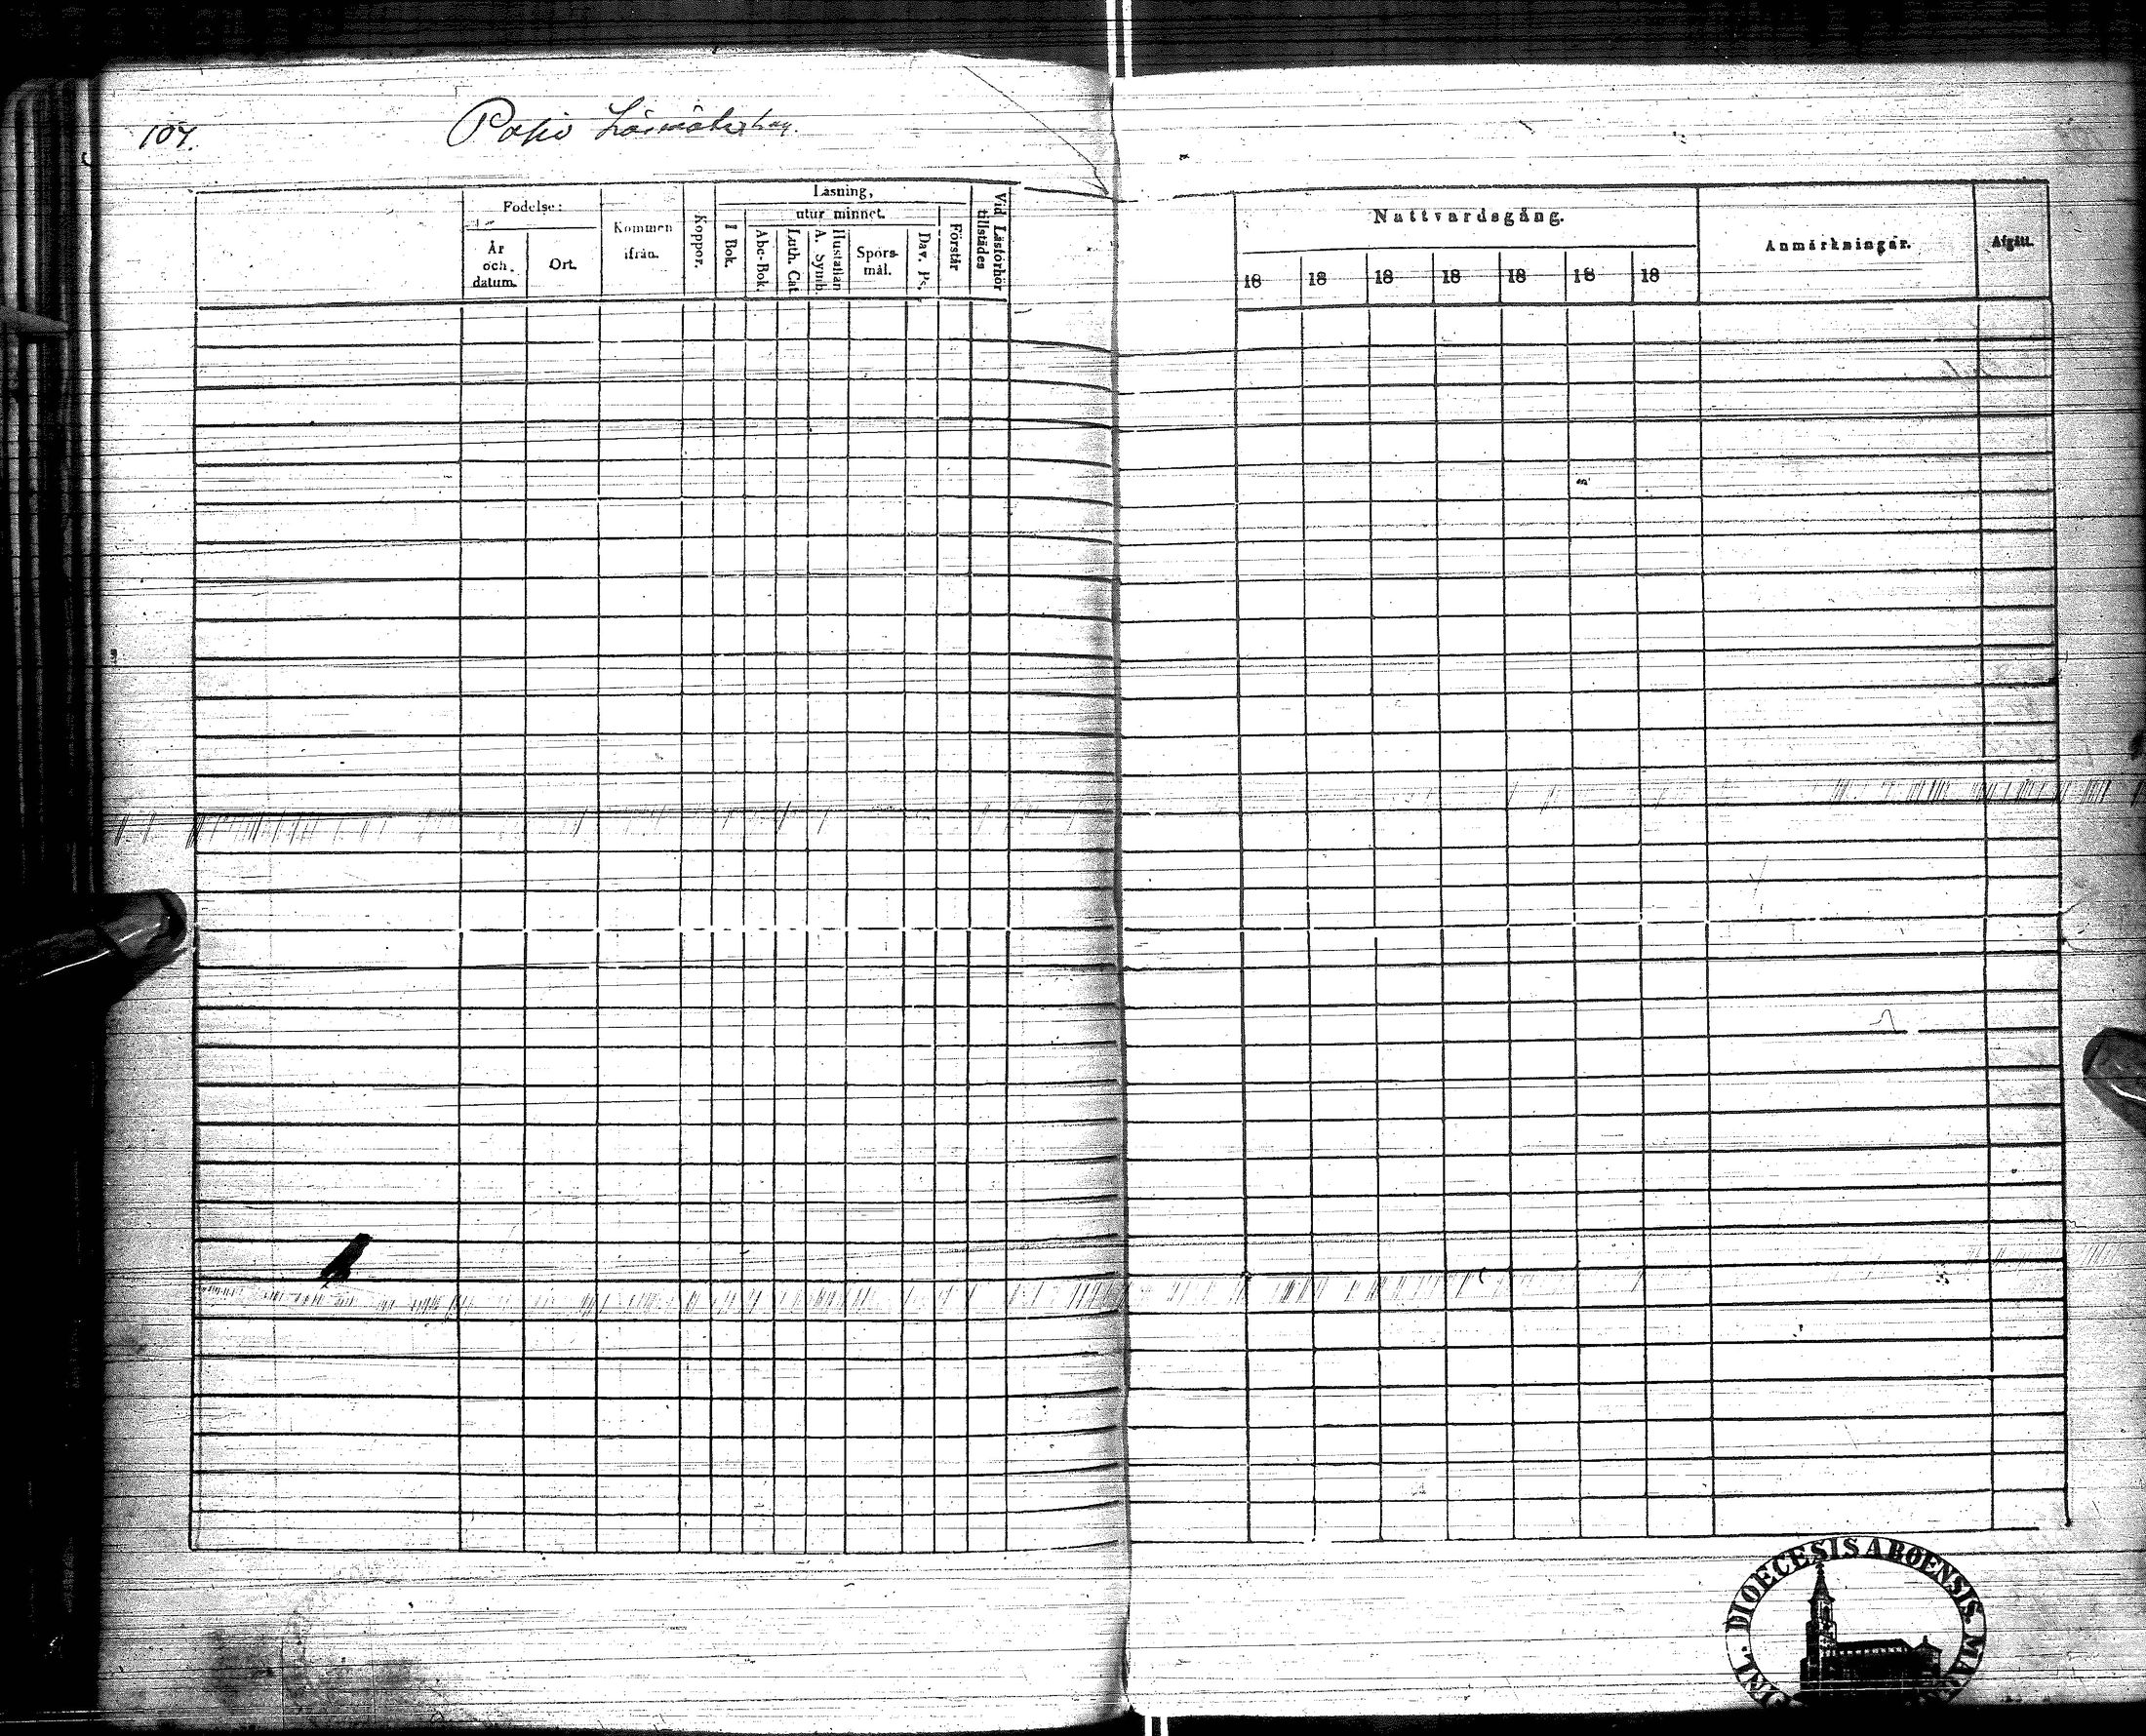 107.
Födelse:
År och datum.
Ort.
Kommen ifrån.
Koppor.
Läsning,
I Bok.
utur minnet.
Abc-Bok.
Luth. Cat.
A. Symb. Hustaflan
Spörsmål.
Dav. Ps.
Förstår
Vid Läsförhör tillstädes
Nattvardsgång.
18 18 18 18 18 18 18
Anmärkningar.
Afgått.
DIOECESIS ABOENSIS